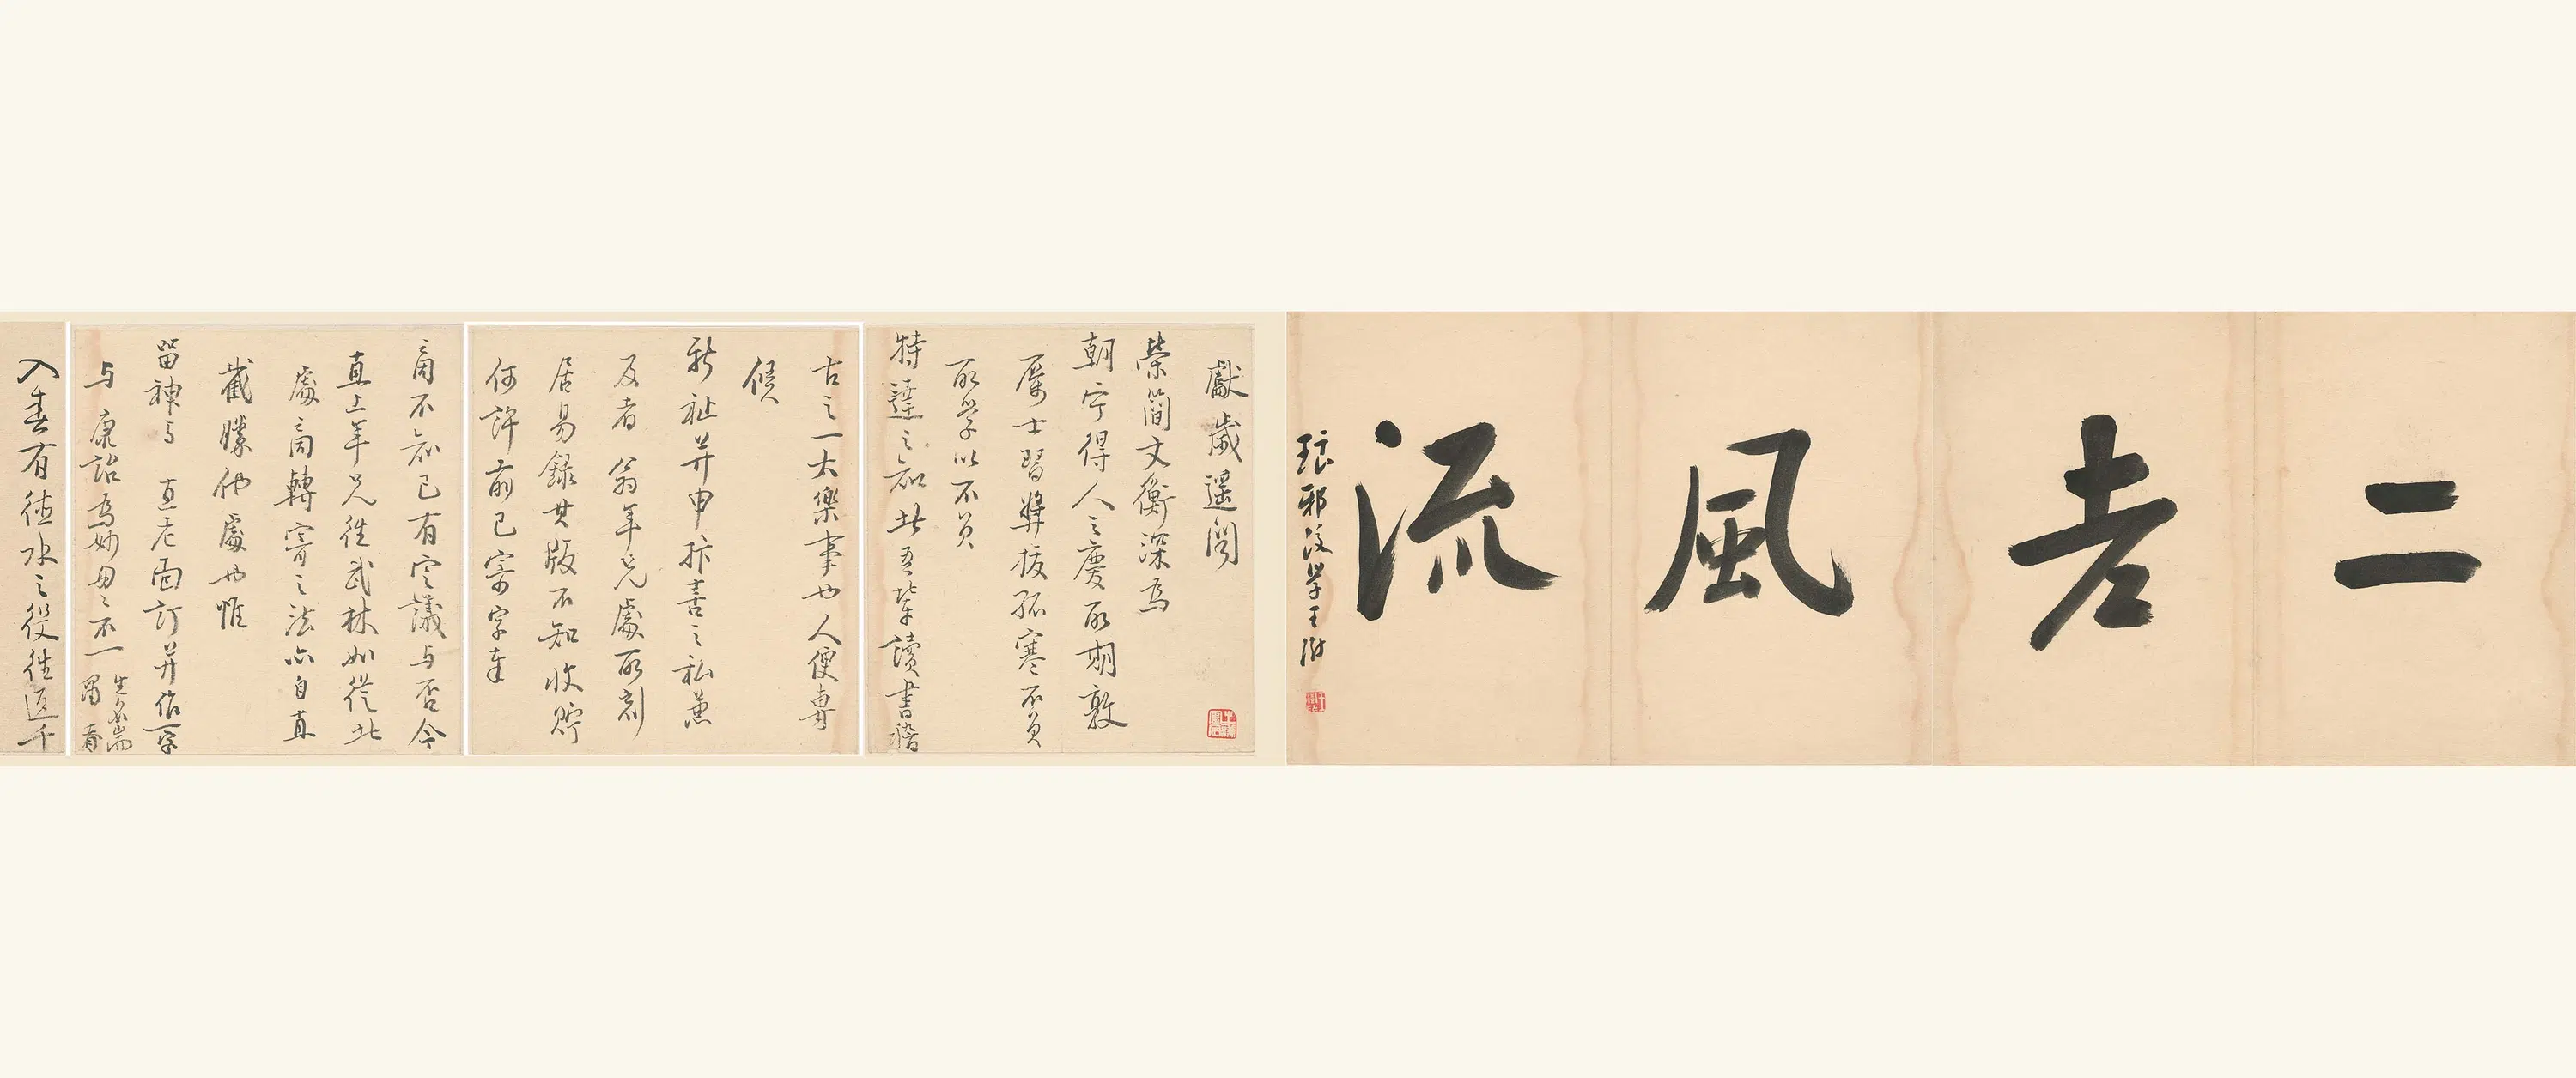 二老風流
琅邪後學王澍
獻歲遥聞
榮簡文衡深為
朝宁得人之慶所期敦
厲士習奬拔孤寒不負
所學以不負
特達之知此吾輩讀書稽
古之一大樂事也人便專
候
新祉并申抃喜之私兼
及者翁年兄處所刻
居易録其版不知收貯
何許前已寄字奉
商不知已有定議与否今
直上年兄往武林如從此
處商轉寄之法亦自直
截勝他處也惟
留神与直老面訂并作一字
与康詒為妙毋毋不一
生名耑
具春
入春有徳水之役往返千